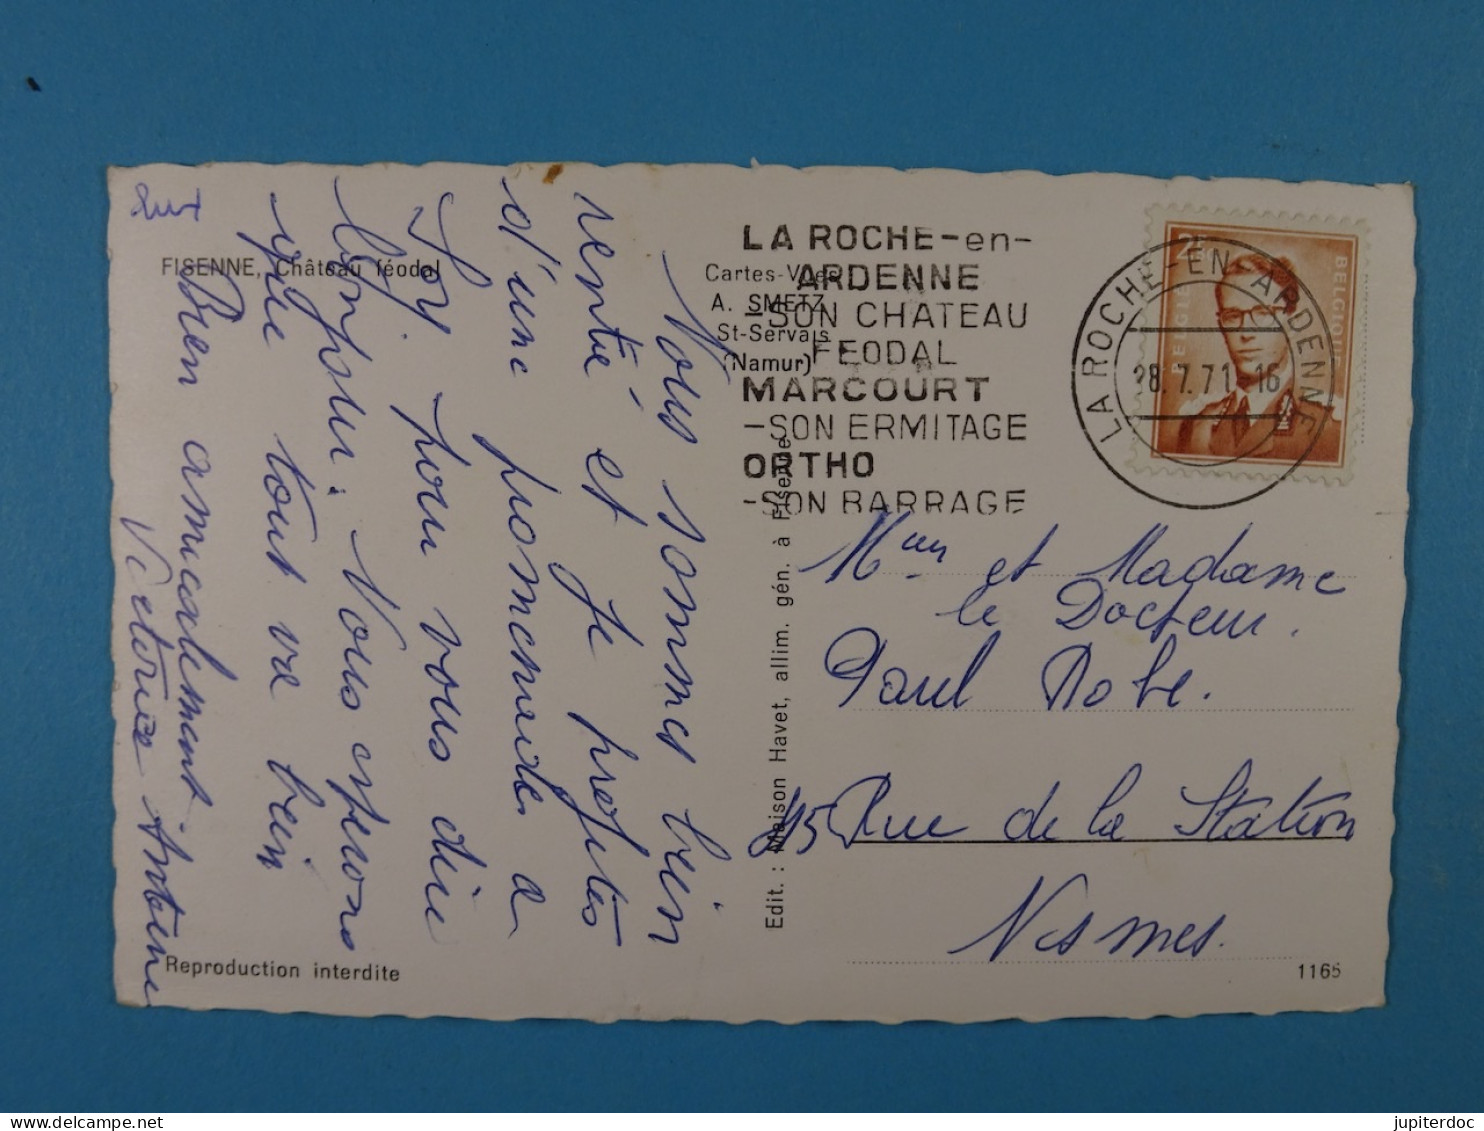 FISENNE, Château féodal
Nous sommes bien
rentré et je profites
d'une promenade a
Soy pour vous dire
bonjour. Vous esperons
que tout va bien
Bien amicalement
Victorine Antoine
Reproduction interdite
Cartes-Vues
A. SMETZ
St-Servais
(Namur)
Edit. : Maison Havet, allim. gén. à Fisenne
LA ROCHE-en-
ARDENNE
-SON CHATEAU
FEODAL
MARCOURT
-SON ERMITAGE
ORTHO
-SON BARRAGE
LA ROCHE-EN-ARDENNE
28.7.71 16
2F
BELGIE
BELGIQUE
et Madame
le Docteur
Paul
45 Rue de la Station
Nismes.
1165
jupiterdoc